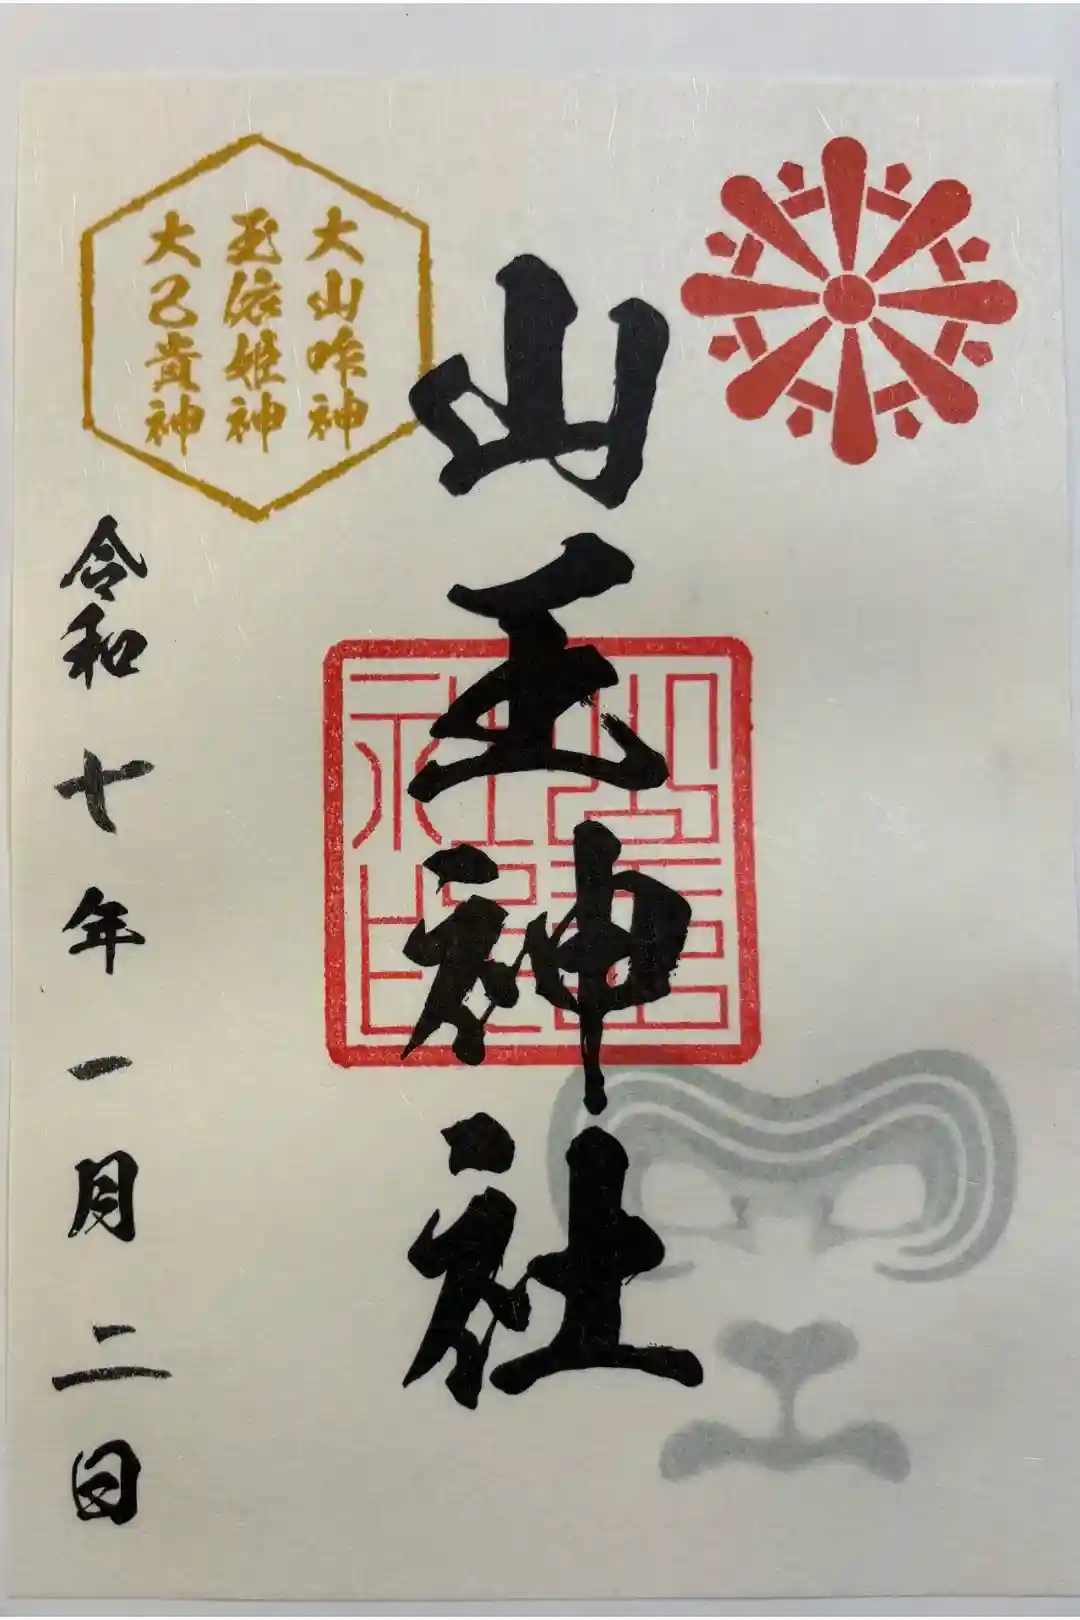 山王神社
大山咋神
玉依姫神
大己貴神
令和十年一月二日